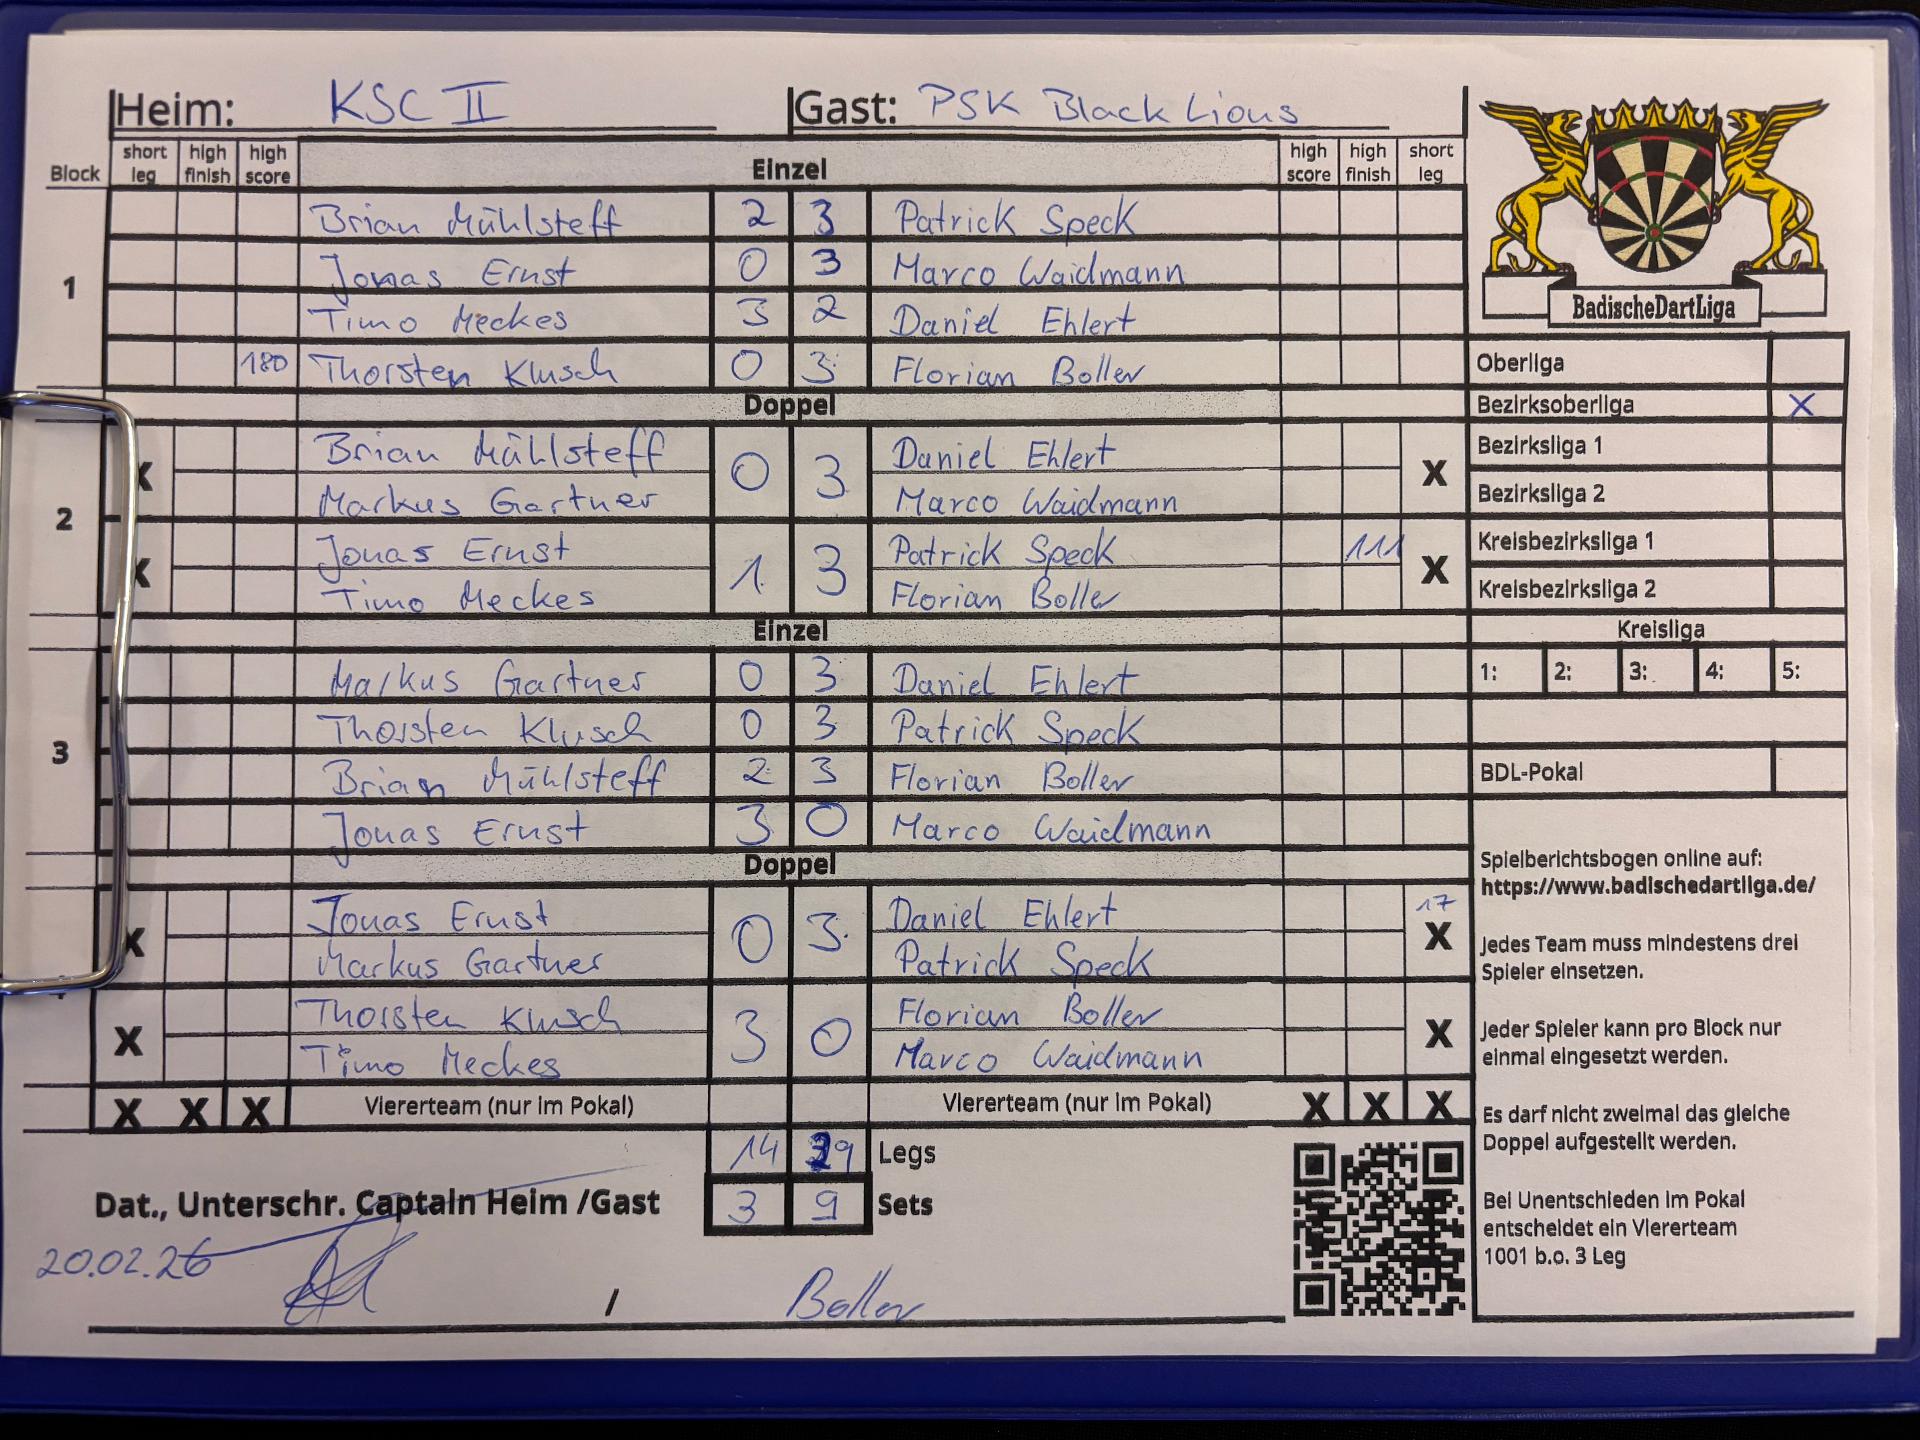 Heim: KSC II Gast: PSK Black Lions
Block short leg high finish high score Einzel high score high finish short leg
1
Brian Mühlsteff 2 3 Patrick Speck
Jonas Ernst 0 3 Marco Waidmann
Timo Meckes 3 2 Daniel Ehlert
180 Thorsten Klusch 0 3 Florian Boller
Doppel
2
X Brian Mühlsteff 0 3 Daniel Ehlert X
Markus Gartner Marco Waidmann
X Jonas Ernst 1 3 Patrick Speck 111 X
Timo Meckes Florian Boller
Einzel
3
Markus Gartner 0 3 Daniel Ehlert
Thorsten Klusch 0 3 Patrick Speck
Brian Mühlsteff 2 3 Florian Boller
Jonas Ernst 3 0 Marco Waidmann
Doppel
X Jonas Ernst 0 3 Daniel Ehlert 17 X
Markus Gartner Patrick Speck
X Thorsten Klusch 3 0 Florian Boller X
Timo Meckes Marco Waidmann
X X X Viererteam (nur im Pokal) Viererteam (nur im Pokal) X X X
14 29 Legs
Dat., Unterschr. Captain Heim /Gast 3 9 Sets
20.02.26 / Boller
BadischeDartLiga
Oberliga
Bezirksoberliga X
Bezirksliga 1
Bezirksliga 2
Kreisbezirksliga 1
Kreisbezirksliga 2
Kreisliga
1: 2: 3: 4: 5:
BDL-Pokal
Spielberichtsbogen online auf:
https://www.badischedartliga.de/
Jedes Team muss mindestens drei
Spieler einsetzen.
Jeder Spieler kann pro Block nur
einmal eingesetzt werden.
Es darf nicht zweimal das gleiche
Doppel aufgestellt werden.
Bei Unentschieden im Pokal
entscheidet ein Viererteam
1001 b.o. 3 Leg